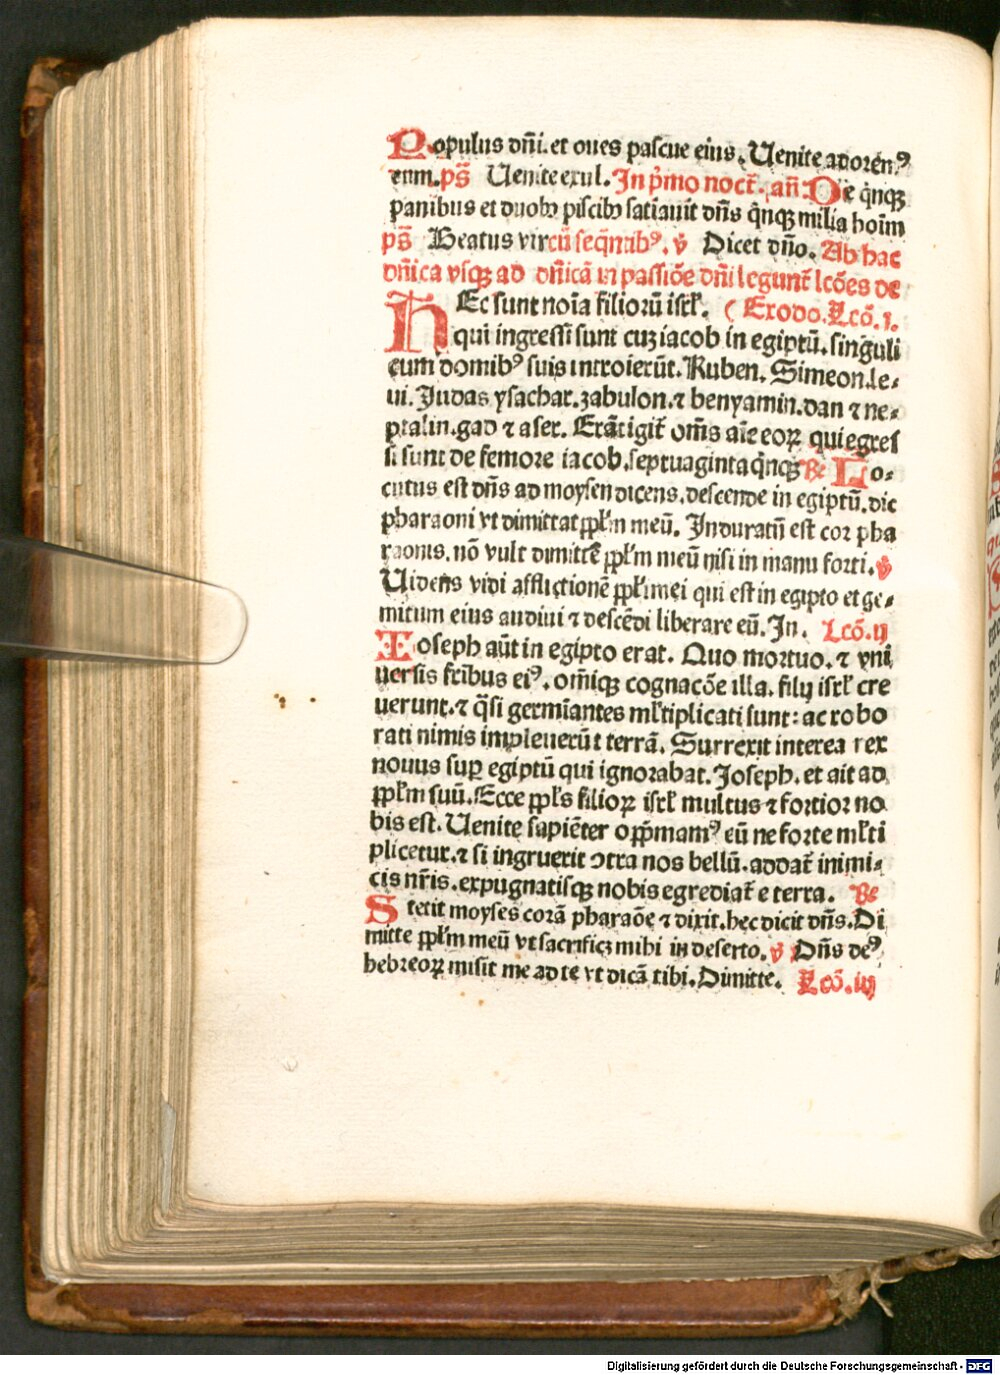 Populus dñi. et oues pascue eius. Uenite adorem⁹
eum. ps̄ Uenite exul. In p̃mo noct̃. añ. De q̃nqꝫ
panibus et duobꝰ piscibꝰ satiauit dñs q̃nqꝫ milia hoĩm
ps̄ Beatus vir cũ seq̃ntibꝰ. ꝟ Dicet dño. Ab hac
dñica vsqꝫ ad dñicã in passiõe dñi legunt̃ lcões de
HEc sunt noĩa filiorũ isrł. ( Exodo. Lcõ. i.
qui ingressi sunt cuꝫ iacob in egiptũ. singuli
cum domibꝰ suis introierũt. Ruben. Simeon. le-
ui. Judas ysachar. zabulon. ⁊ benyamin. dan ⁊ ne-
ptalin. gad ⁊ aser. Erãt igit̃ om̃s aĩe eoꝝ qui egres
si sunt de femore iacob. septuaginta q̃nqꝫ ℟ Lo-
cutus est dñs ad moysen dicens. descende in egiptũ. dic
pharaoni vt dimittat ppłm meũ. Induratũ est cor pha
raonis. nõ vult dimittẽ ppłm meũ nisi in manu forti. ꝟ
Uidens vidi afflictionẽ ppłi mei qui est in egipto et ge-
mitum eius audiui ⁊ descẽdi liberare eũ. In. Lcõ. ij
Ioseph aũt in egipto erat. Quo mortuo. ⁊ vni
uersis fribus eiꝰ. om̃iqꝫ cognacõe illa. filij isrł cre
uerunt. ⁊ q̃si germĩantes młtiplicati sunt: ac robo
rati nimis impleuerũt terrã. Surrexit interea rex
nouus suꝑ egiptũ qui ignorabat. Joseph. et ait ad
ppłm suũ. Ecce ppłs filioꝝ isrł multus ⁊ fortior no
bis est. Uenite sapiẽter opp̃mamꝰ eũ ne forte młti
plicetur. ⁊ si ingruerit ↄtra nos bellũ. addat̃ inimi-
cis nr̃is. expugnatisqꝫ nobis egrediat̃ e terra. ℟
Stetit moyses corã pharaõe ⁊ dixit. hec dicit dñs. Di
mitte ppłm meũ vt sacrificꝫ mihi in deserto. ꝟ Dñs deꝰ
hebreoꝝ misit me ad te vt dicã tibi. Dimitte. Lcõ. iij
Digitalisierung gefördert durch die Deutsche Forschungsgemeinschaft - DFG